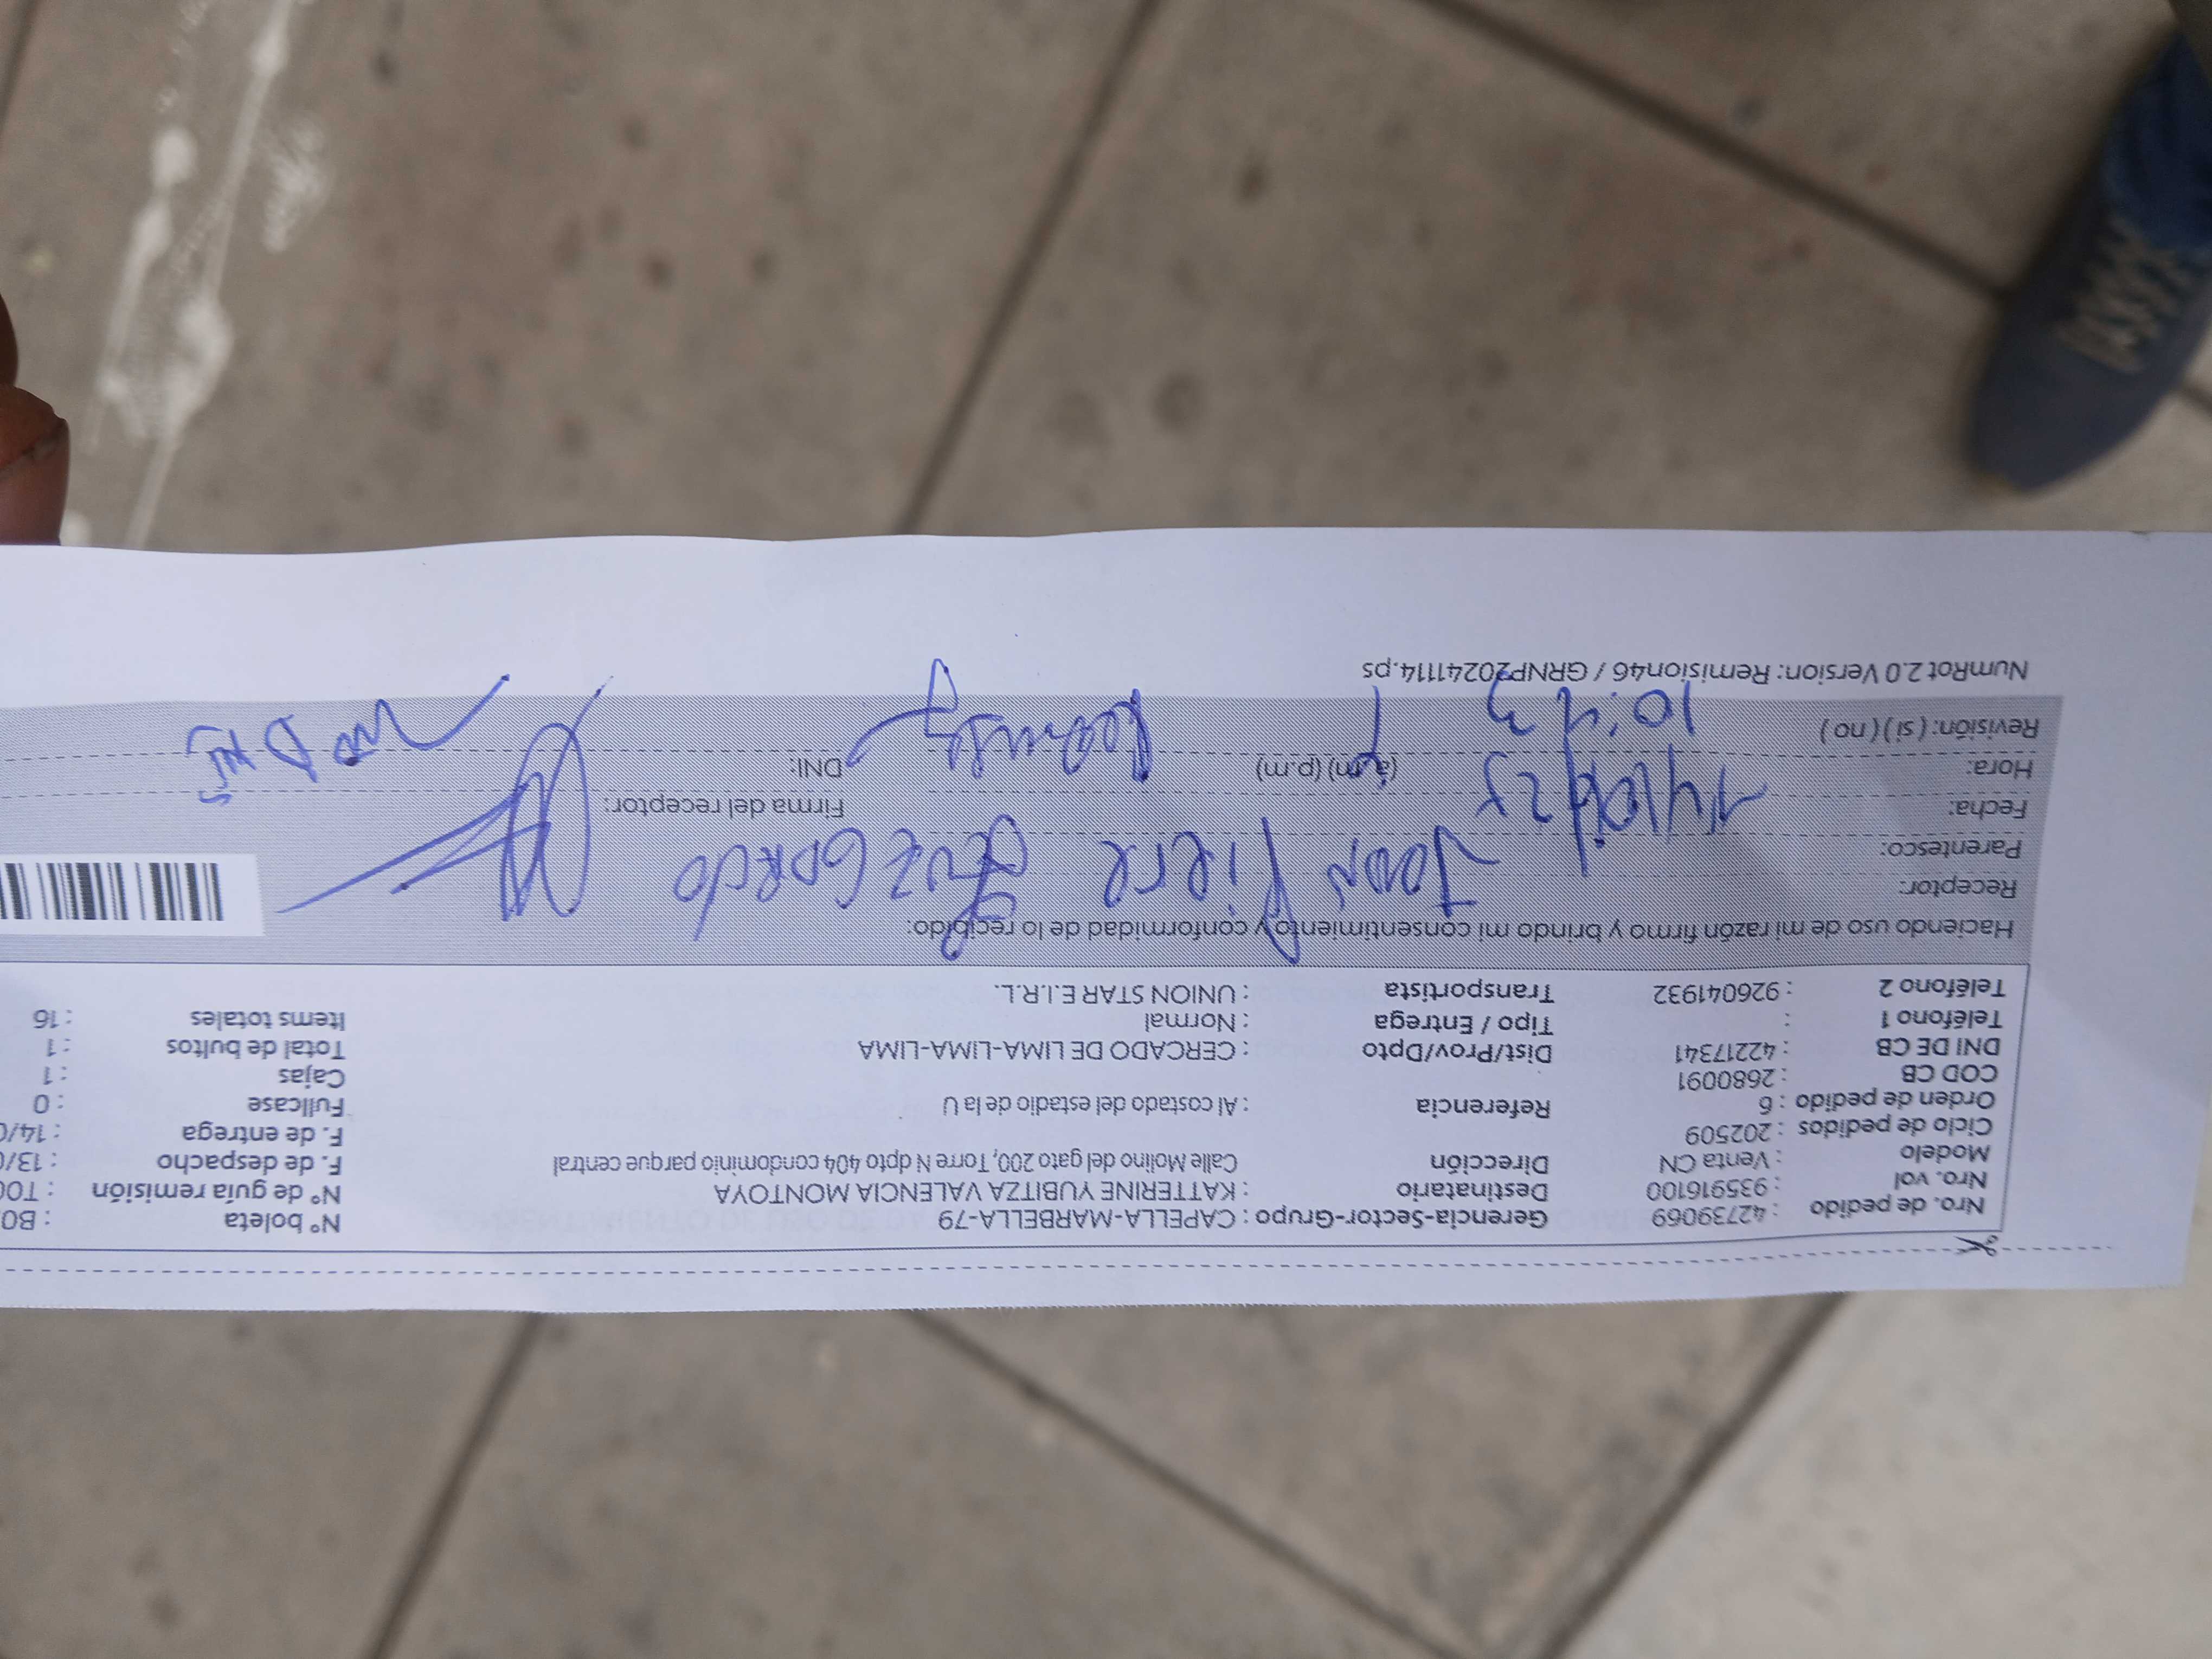 Nro. de pedido : 42739069 Gerencia-Sector-Grupo : CAPELLA-MARBELLA-79 N° boleta : B0
Nro. vol : 935916100 Destinatario : KATTERINE YUBITZA VALENCIA MONTOYA N° de guía remisión : T00
Modelo : Venta CN Dirección Calle Molino del gato 200, Torre N dpto 404 condominio parque central F. de despacho : 13/0
Ciclo de pedidos : 202509 F. de entrega : 14/0
Orden de pedido : 6 Referencia : Al costado del estadio de la U Fullcase : 0
COD CB : 2680091 Cajas : 1
DNI DE CB : 42217341 Dist/Prov/Dpto : CERCADO DE LIMA-LIMA-LIMA Total de bultos : 1
Teléfono 1 : Tipo / Entrega : Normal Items totales : 16
Teléfono 2 : 926041932 Transportista : UNION STAR E.I.R.L.
Haciendo uso de mi razón firmo y brindo mi consentimiento y conformidad de lo recibido:
Receptor: Jean Piere
Parentesco:
Fecha: 14/06/25 Firma del receptor:
Hora: (a.m) (p.m) DNI:
Revisión: ( si ) ( no ) 10:43
NumRot 2.0 Version: Remision46 / GRNP20241114.ps